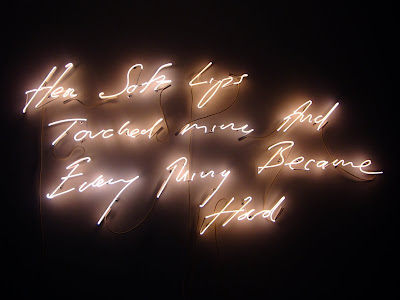 Her Soft Lips
Touched mine And
Every Thing Became
Hard